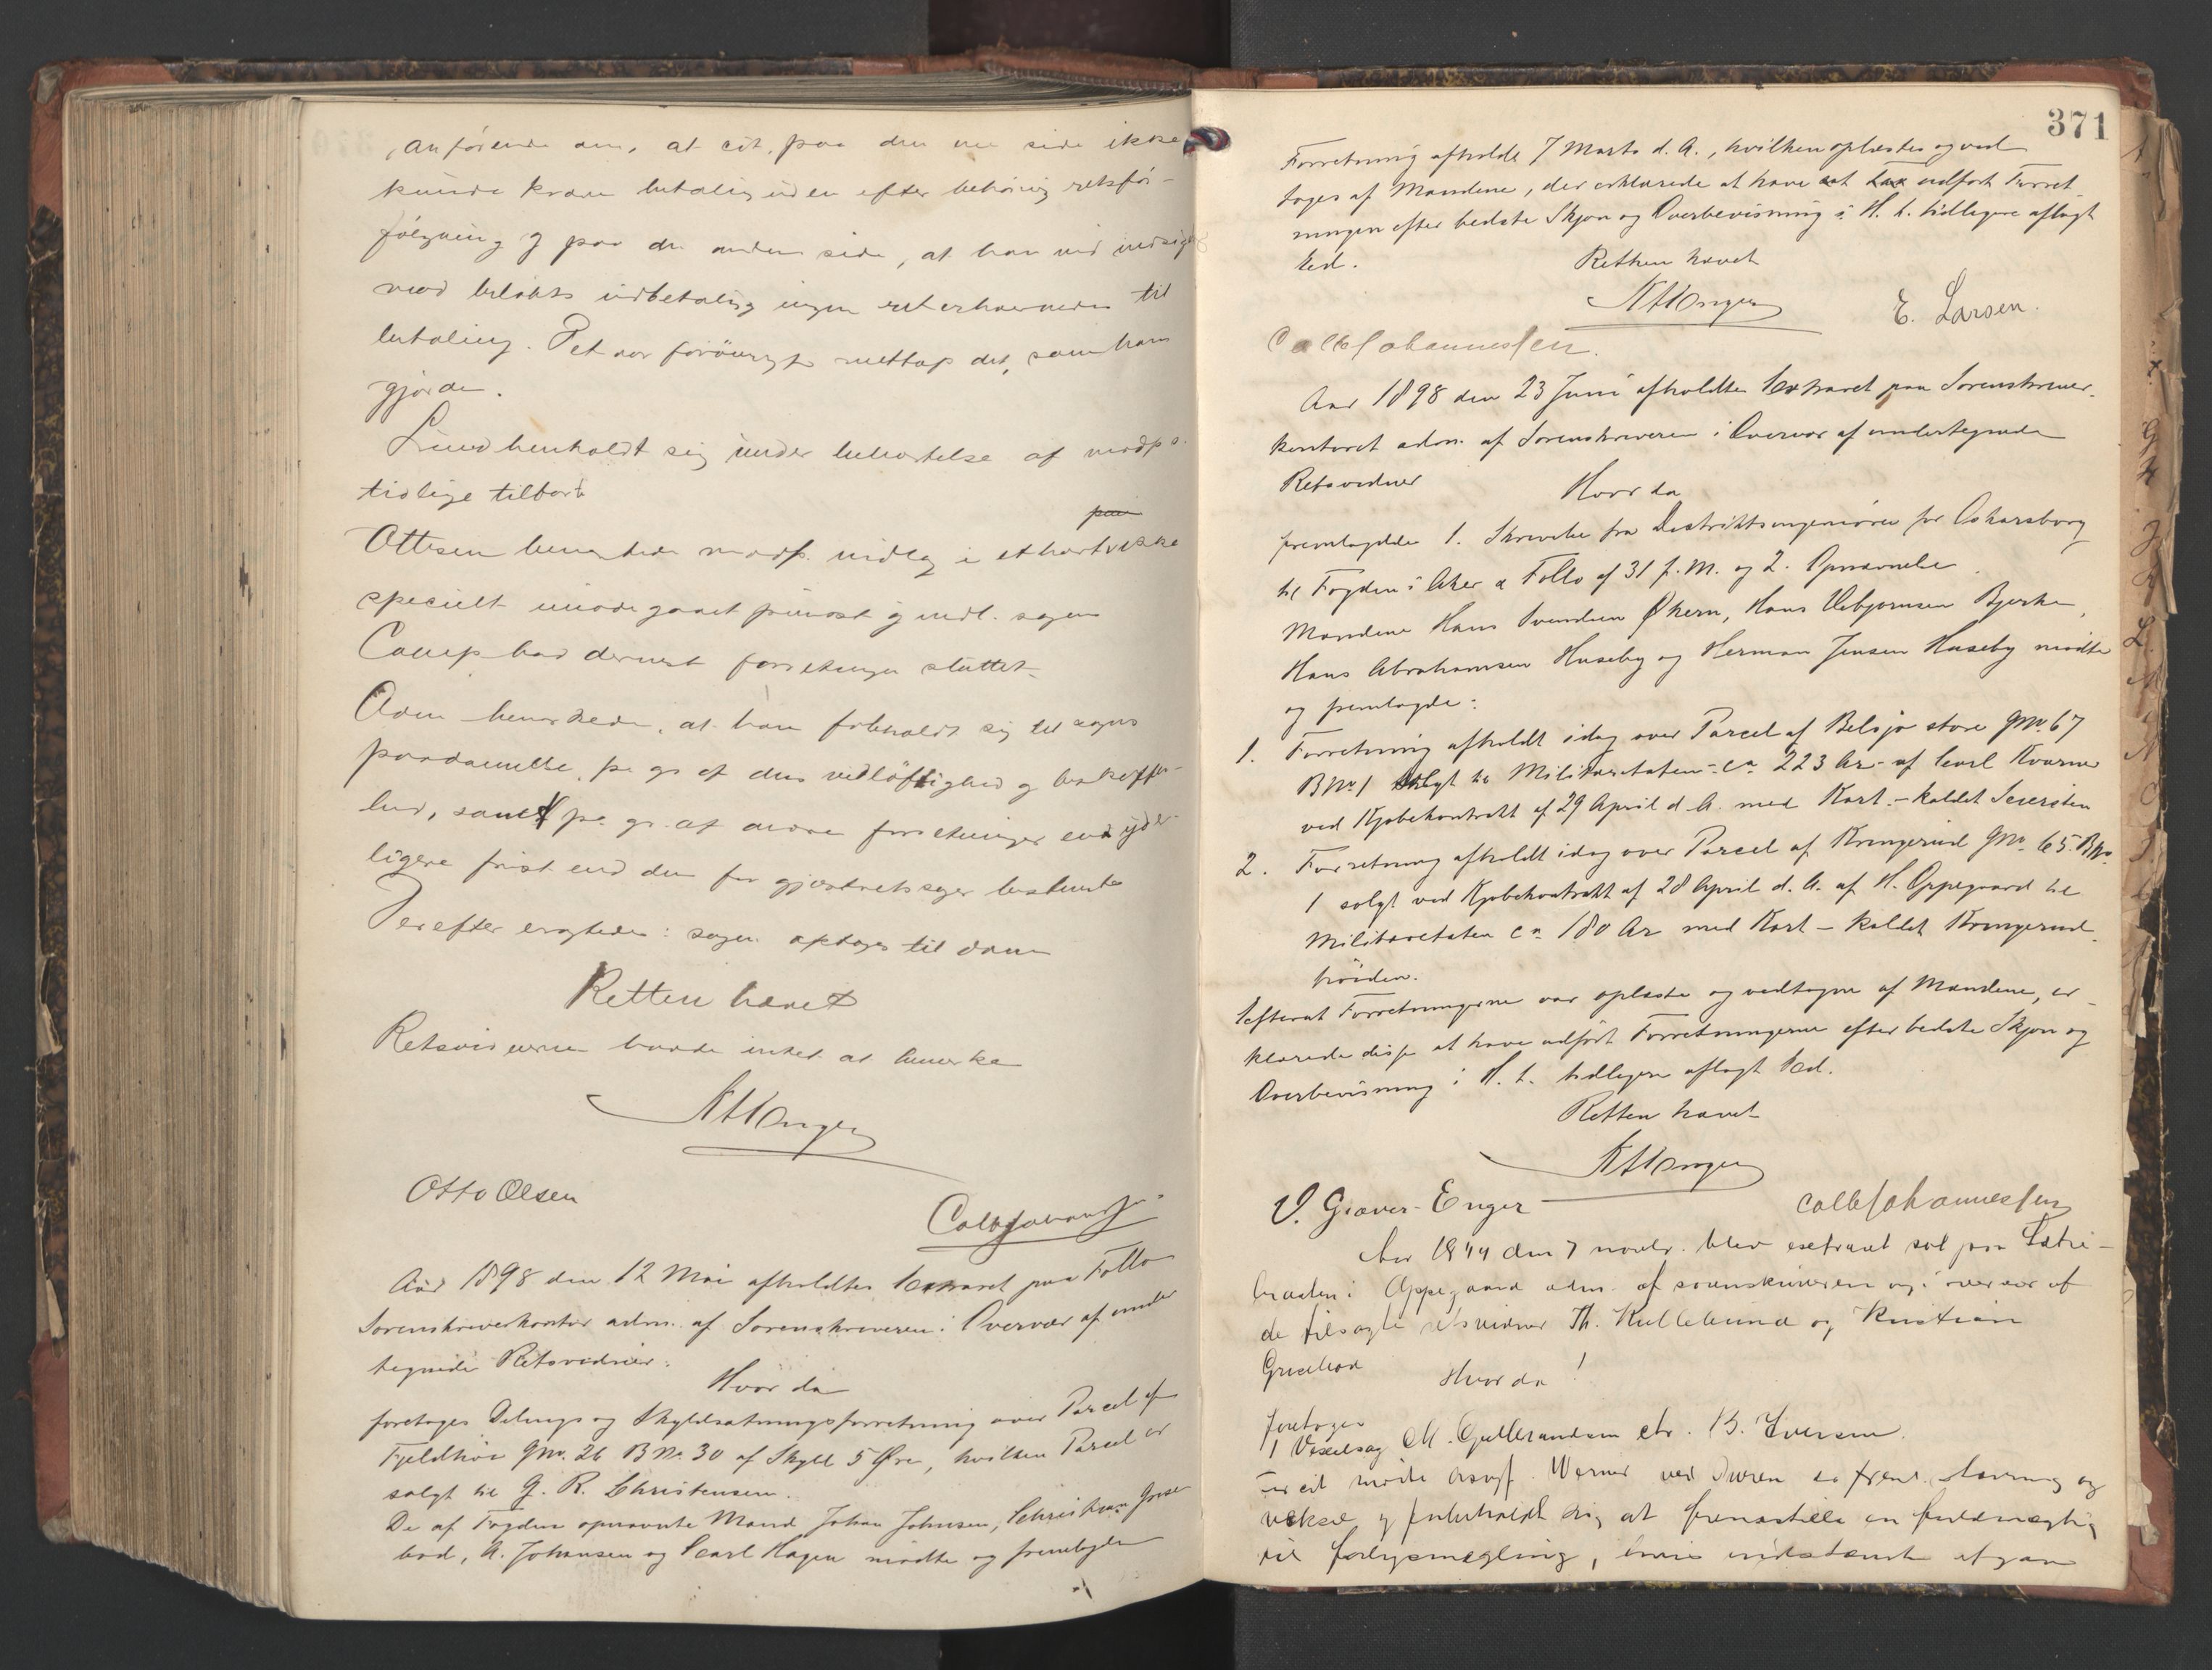 anförende om, at cit. paa den ene side ikke
kunde kræve betaling uden efter behörig retsfor-
fölgning og paa den anden side, at han ved indsigelse
mod belöbets udbetaling ingen til
betaling. Det var forövrigt netop det, som han
gjorde.
Lund henholdt sig under benægtelse af modp.s
tidlige tilbart
Ottesen benægtede modp. indlæg i et hvert
specielt imödegaaet og indl. sagen
Comp. har dernæst forretningen sluttet.
Dom bemærkede, at han forbeholdt sig til sagens
paadömmelse, pa. gr. af dens vidlöftighed og beskaffen-
hed, samt pa. gr. af andre forretninger end yder-
ligere frist end den for gjæsteretssager bestemte
Derefter eragtedes: sagen optages til dom
Retten hævet
Retsvidnerne havde intet at bemærke
Otto Olsen
Aar 1898 den 12 Mai afholdtes Extraret paa Follo
Sorenskriverkontor adm. af Sorenskriveren i Overvær af under
tegnede Retsvidner:
Hvor da
foretoges Delings og Skyldsætningsforretning over Parcel af
Fjeldhöi Gno. 26 BNo. 30 af Skyld 5 Øre, hvilken Parcel er
solgt til G. R. Christensen.
De af Fogden opnævnte Mænd Johan Johnsen, Christian Grise
bod, A. Johansen og Carl Hagen mödte og fremlagde
371
Forretning afholdt 7 Marts d. A., hvilken oplæstes og ved
toges af Mændene, der erklærede at have udfört Forret
ningen efter bedste Skjøn og Overbevisning i H. t. tidligere aflagt
Ed.
Retten hævet
E. Larsen.
Aar 1898 den 23 Juni afholdtes Extraret paa Sorenskriver-
kontoret adm. af Sorenskriveren i Overvær af undertegnede
Retsvidner
Hvor da
fremlagdes 1. Skrivelse fra Distriktsingeniören for Oskarsborg
til Fogden i Aker & Follo af 31 f. M. og 2. Opnævnelse
Mændene Hans Svendsen Økern, Hans Bjerke,
Hans Abrahamsen Huseby og Herman Jensen Huseby mödte
og fremlagde:
1. Forretning afholdt idag over Parcel af Belsjø store Gno. 67
BNo. 1 solgt til Militæretaten - ca 223 Ar - af Carl Kværner
ved Kjøbekontrakt af 29 April d. A. med Kart. - kaldet Seiersten
2. Forretning afholdt idag over Parcel af Kringerud GNo. 65. BNo.
1 solgt ved Kjøbekontrakt af 28 April d. A. af H. Oppegaard til
Militæretaten ca 180 Ar med Kart - kaldet Kringerud-
höiden.
Efterat Forretningerne var oplæste og vedtagne af Mændene, er-
klærede disse at have udfört Forretningerne efter bedste Skjøn og
Overbevisning i H. t. tidligere aflagt Ed.
Retten hævet
V. Graver-Enger
Aar den 7 novbr. blev extraret sat paa Sætre-
braaten i Oppegaard adm. af sorenskriveren og i overvær af
de tilsagte retsvidner Th. Kullebund og Kristian
Grisebod
Hvor da!
foretoges
1 Vexelsag M. Gulbrandsen ctr. B. Iversen.
For cit mödte ovsgf. Werner ved Duren sa freml. stævning og
veksel og forbeholdt sig at fremstille en fuldmægtig
til forligsmægling,